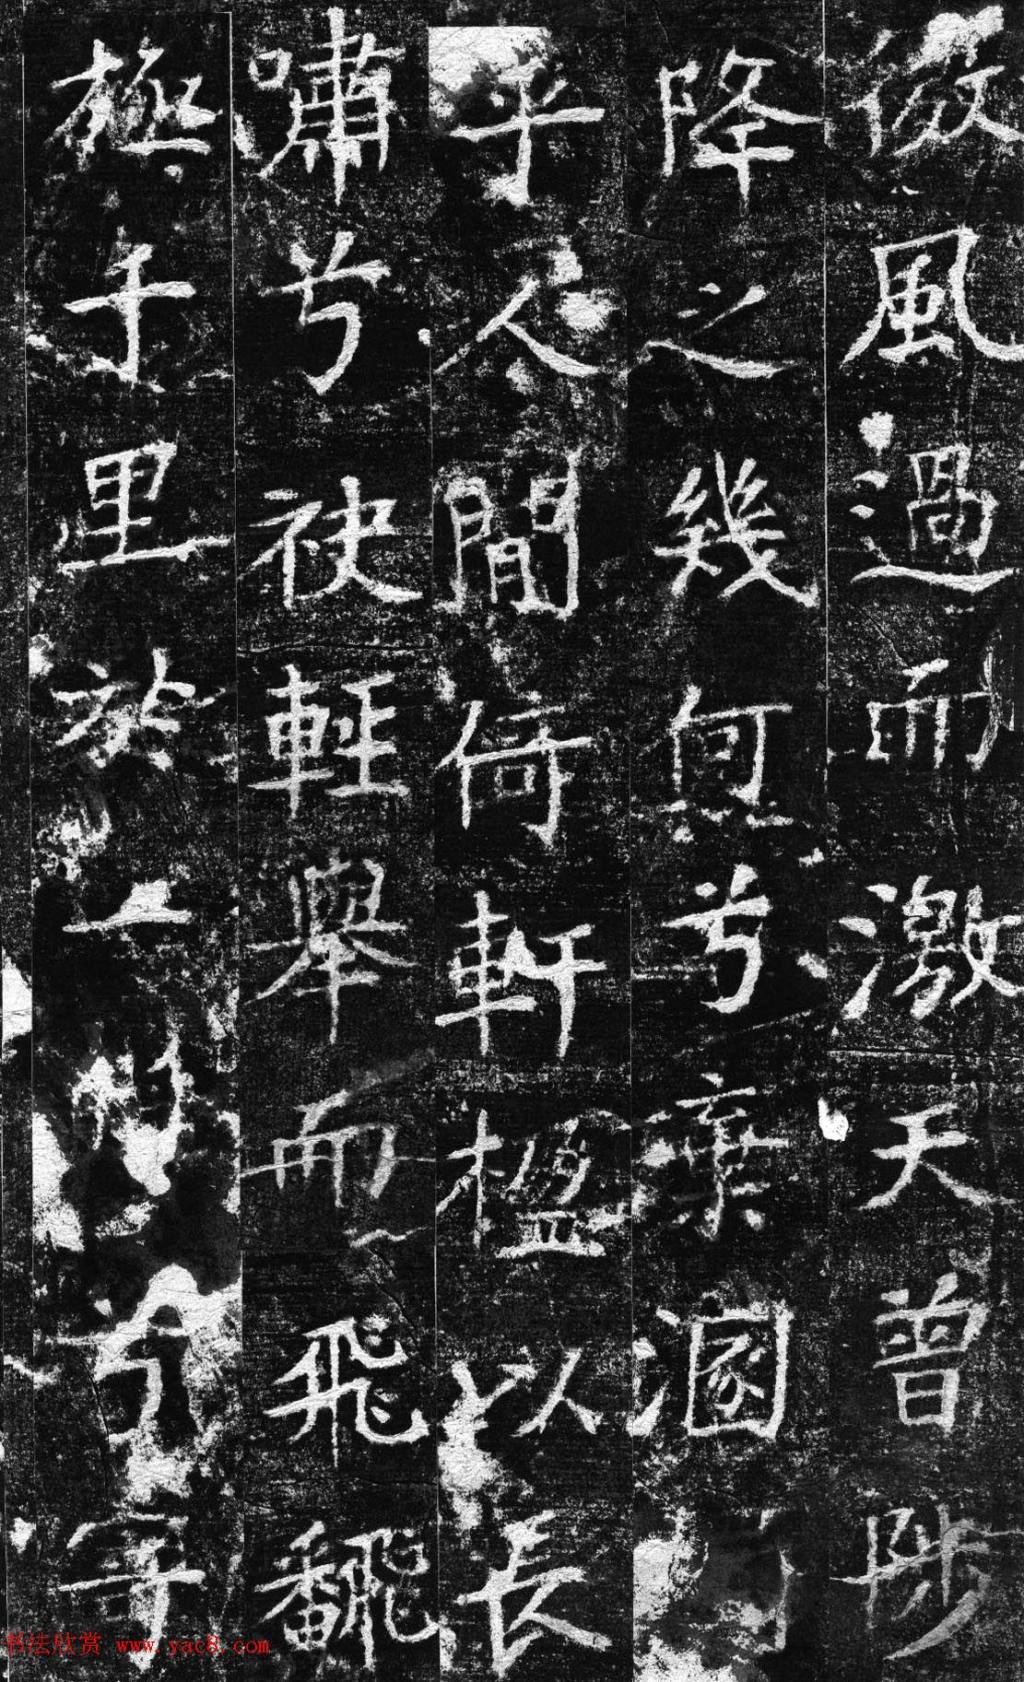 微風過而激天曾陟
降之幾何兮棄溷
乎人間倚軒檻以長
嘯兮袂輕舉而飛飜
極千里於一兮寄
书法欣赏 www.yac8.com